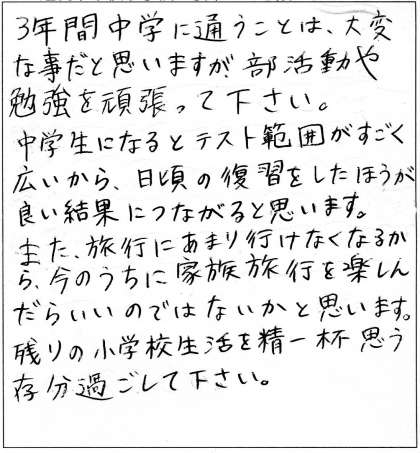 3年間中学に通うことは、大変
な事だと思いますが部活動や
勉強を頑張って下さい。
中学生になるとテスト範囲がすごく
広いから、日頃の復習をしたほうが
良い結果につながると思います。
また、旅行にあまり行けなくなるか
ら、今のうちに家族旅行を楽しん
だらいいのではないかと思います。
残りの小学校生活を精一杯思う
存分過ごして下さい。